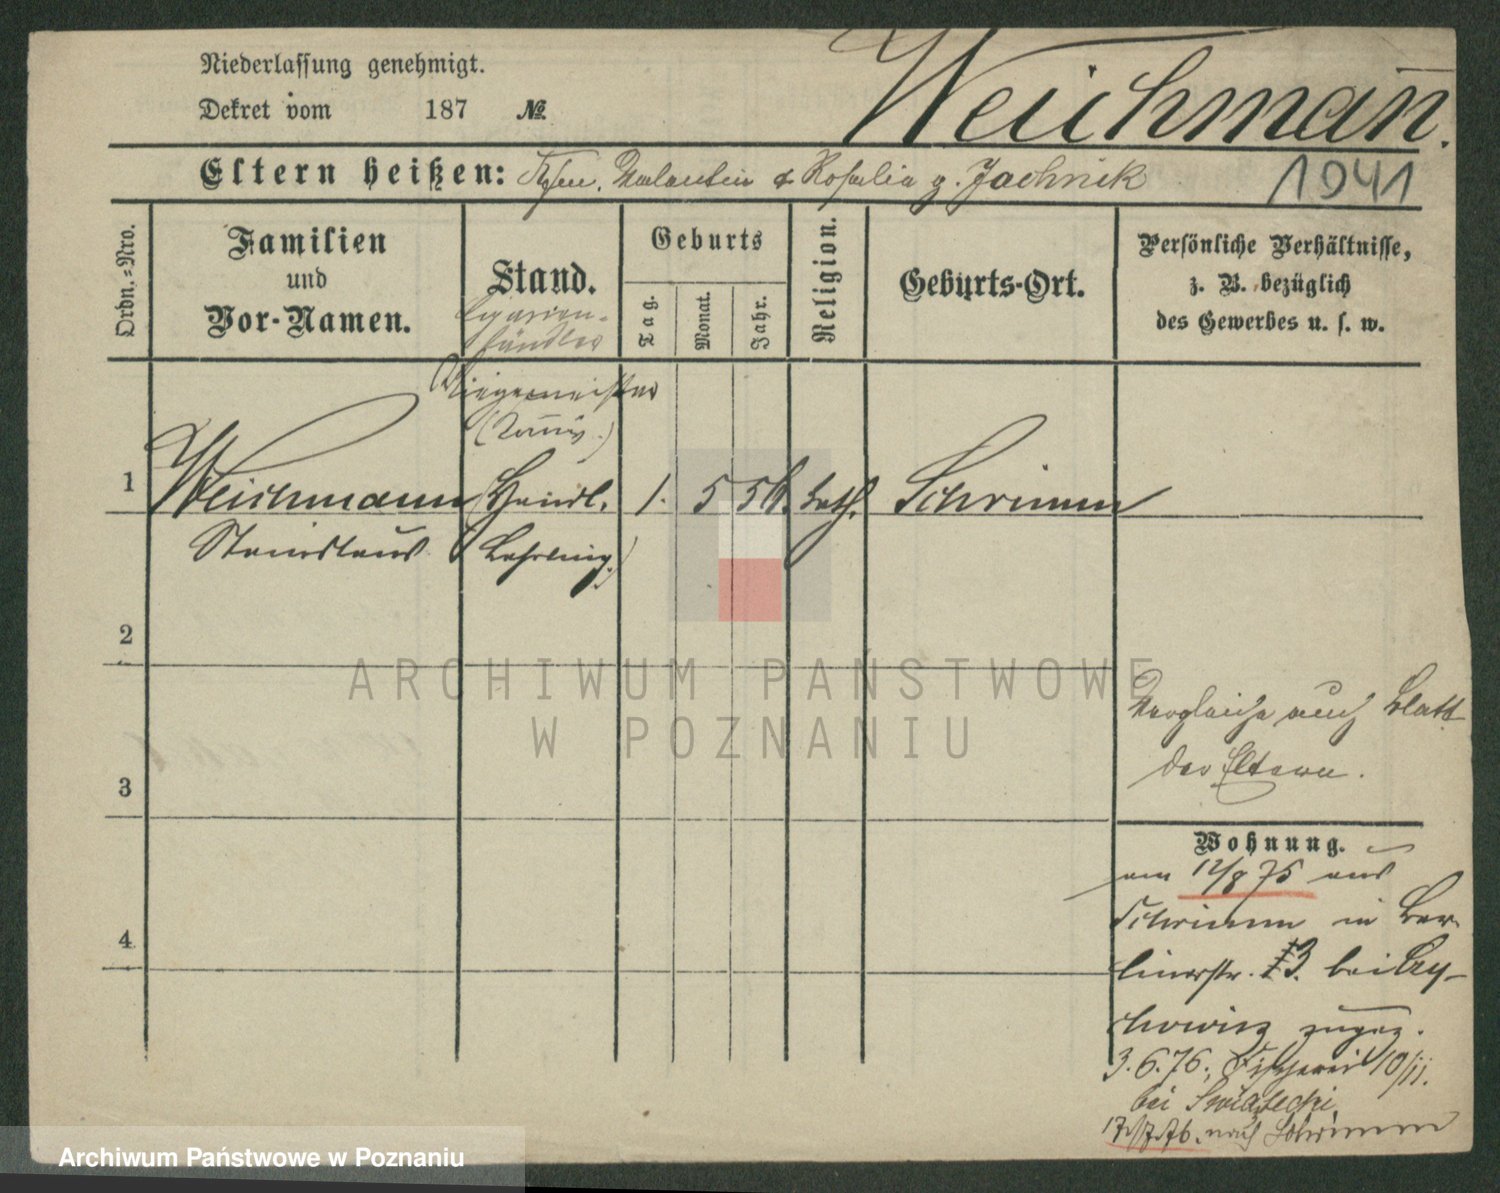 Niederlassung genehmigt.
Weichman̄.
Dekret vom 187 №
Eltern heißen: Valentin & Rosalia g. Jachnik
1941
Ordn.=Nro.
Familien
und
Vor-Namen.
Stand.
Geburts
Tag.
Monat.
Jahr.
Religion.
Geburts-Ort.
Persönliche Verhältnisse,
z. B. bezüglich
des Gewerbes u. s. w.
Cigarren-
händler
Bürgermeister
1
Weichmann (Handl. 1. 5 56. kath. Schrimm
Stanislaus Lehrling.)
2
ARCHIWUM PAŃSTWOWE
W POZNANIU
Vergleiche auch Blatt
der Eltern.
3
Wohnung.
am 12/8 75 aus
Schrimm in Ber-
4
linerstr. 13. bei Cy-
chowicz zugez.
3.6.76. Fischerei 10/11.
bei Swiątecki
17./7.76. nach Schrimm
Archiwum Państwowe w Poznaniu